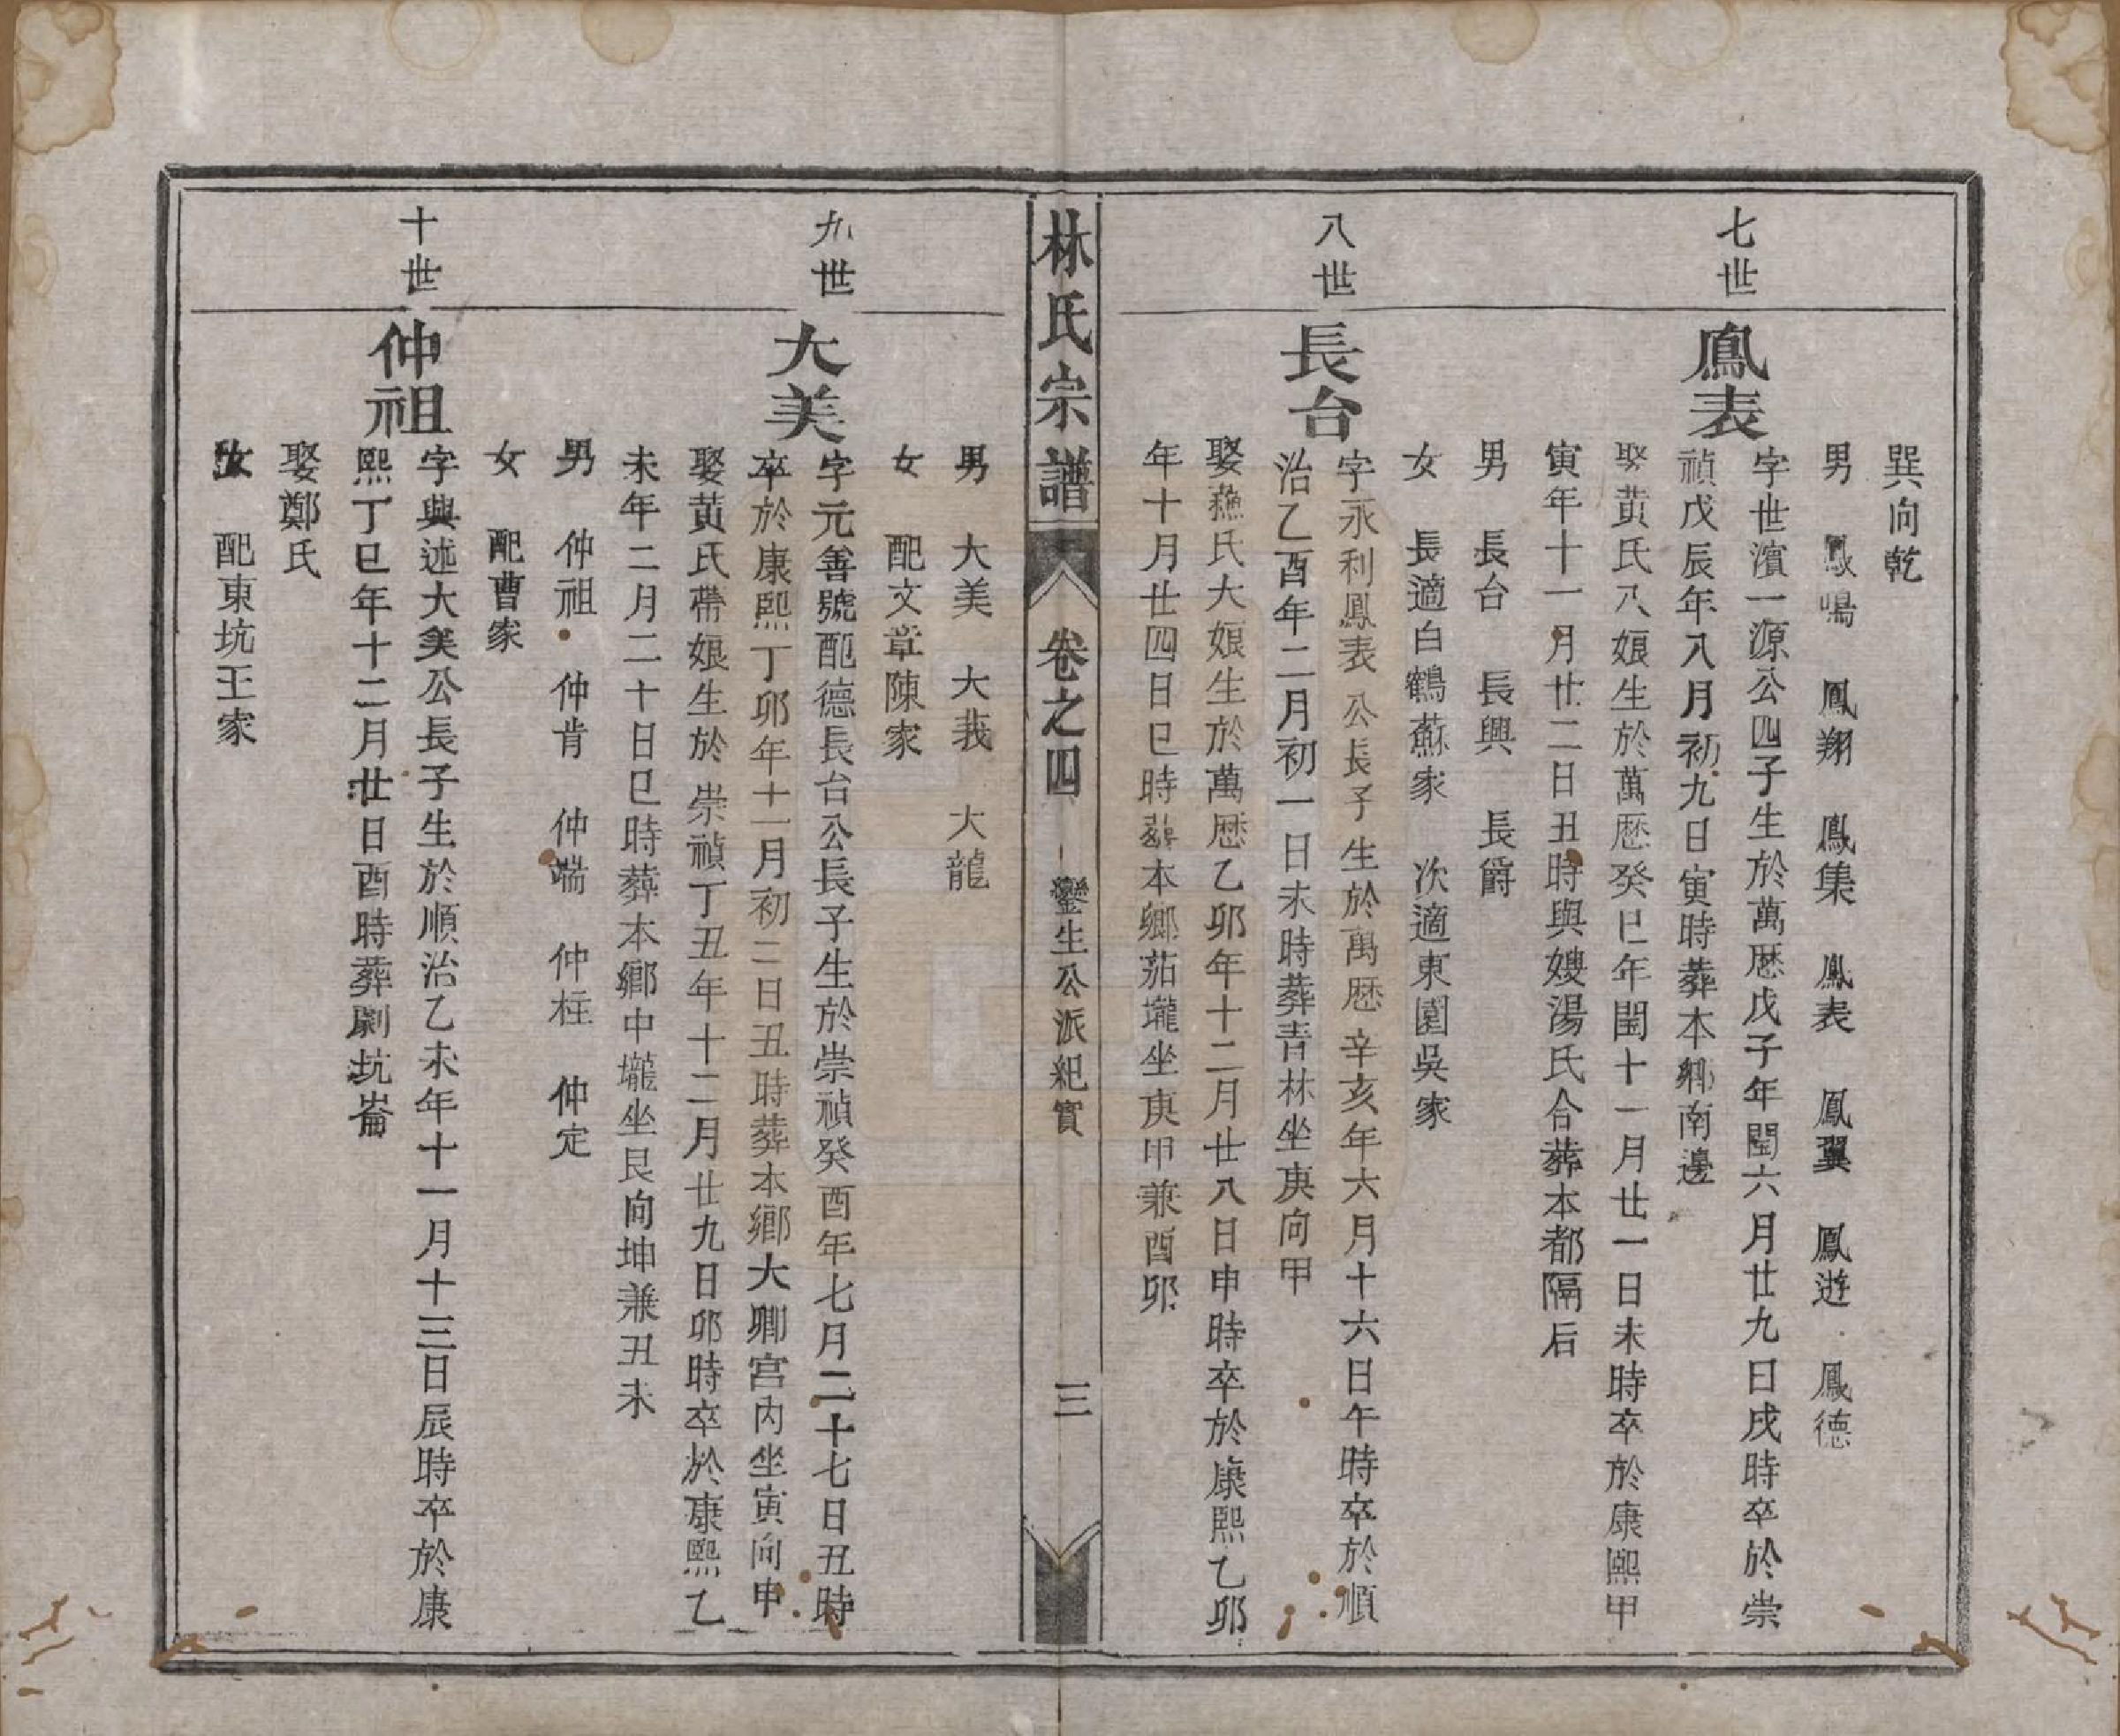 巽向乾
男　鳳鳴　鳳翔　鳳集　鳳表　鳳翼　鳳遊　鳳德
七世
鳳表
字世濱一源公四子生於萬歷戊子年閏六月廿九日戌時卒於崇
禎戊辰年八月初九日寅時葬本鄉南邊
娶黃氏八娘生於萬歷癸巳年閏十一月廿一日未時卒於康熙甲
寅年十一月廿二日丑時與嫂湯氏合葬本都隔后
男　長台　長興　長爵
女　長適白鶴蘇家　次適東園吳家
八世
長台
字永利鳳表公長子生於萬歷辛亥年六月十六日午時卒於順
治乙酉年二月初一日未時葬青林坐庚向甲
娶蘓氏大娘生於萬歷乙卯年十二月廿八日申時卒於康熙乙卯
年十月廿四日巳時葬本鄉茄壠坐庚甲兼酉卯
林氏宗譜　卷之四　鑾生公派紀實　三
男　大美　大我　大龍
女　配文章陳家
九世
大美
字元善號配德長台公長子生於崇禎癸酉年七月二十七日丑時
卒於康熙丁卯年十一月初二日丑時葬本鄉大卿宮內坐寅向申
娶黃氏帶娘生於崇禎丁丑年十二月廿九日卯時卒於康熙乙
未年二月二十日巳時葬本鄉中壠坐艮向坤兼丑未
男　仲祖　仲肯　仲端　仲柱　仲定
女　配曹家
十世
仲祖
字典述大美公長子生於順治乙未年十一月十三日辰時卒於康
熙丁巳年十二月廿日酉時葬劘坑崙
娶鄭氏
女　配東坑王家